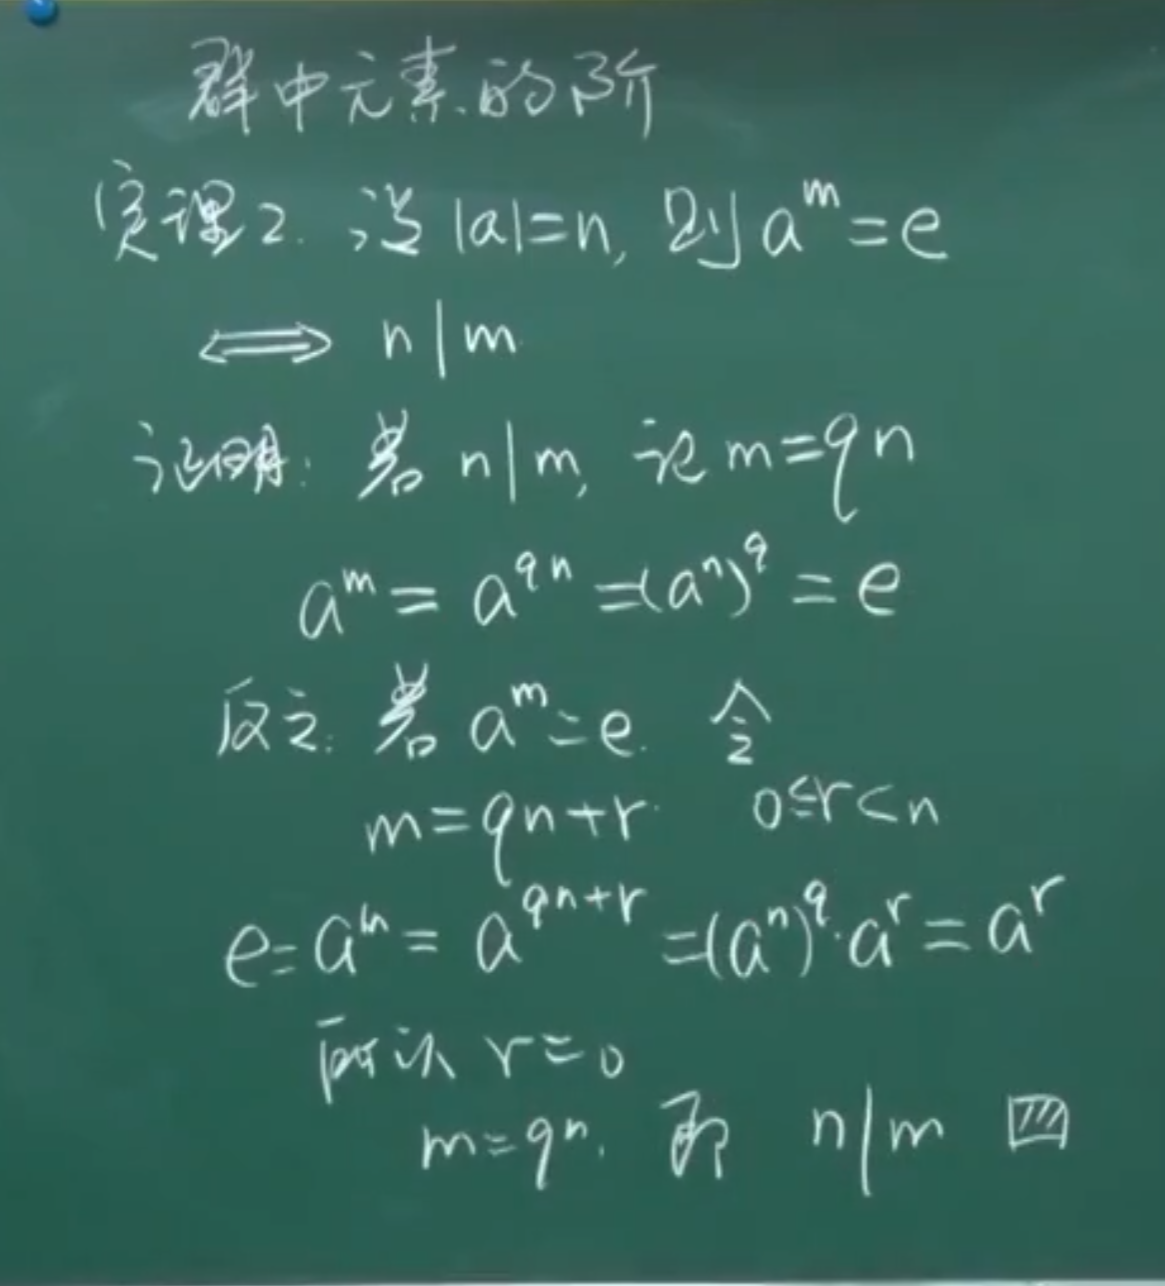 群中元素的阶
定理2. 设|a|=n, 则a^m=e
⟺ n|m
证明: 若 n|m, 记 m=qn
a^m = a^{qn} =(a^n)^q = e
反之: 若 a^m=e. 令
m=qn+r. 0≤r<n
e=a^m= a^{qn+r} =(a^n)^q·a^r=a^r
所以 r=0
m=qn. 即 n|m ▨